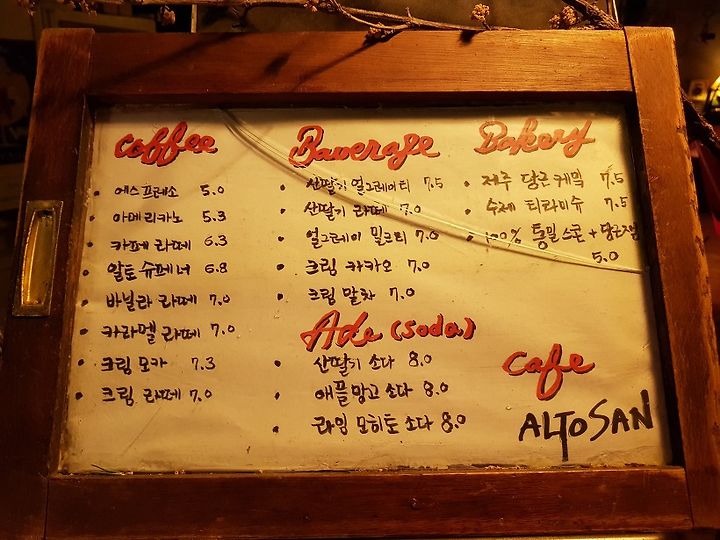 Coffee
에스프레소 5.0
아메리카노 5.3
카페 라떼 6.3
알토 슈페너 6.8
바닐라 라떼 7.0
카라멜 라떼 7.0
크림 모카 7.3
크림 라떼 7.0
Baverage
산딸기 얼그레이티 7.5
산딸기 라떼 7.0
얼그레이 밀크티 7.0
크림 카카오 7.0
크림 말차 7.0
Ade (Soda)
산딸기 소다 8.0
애플망고 소다 8.0
라임 모히토 소다 8.0
Bakery
제주 당근 케익 7.5
수제 티라미슈 7.5
100% 통밀 스콘 + 당근잼
5.0
Cafe
ALTOSAN